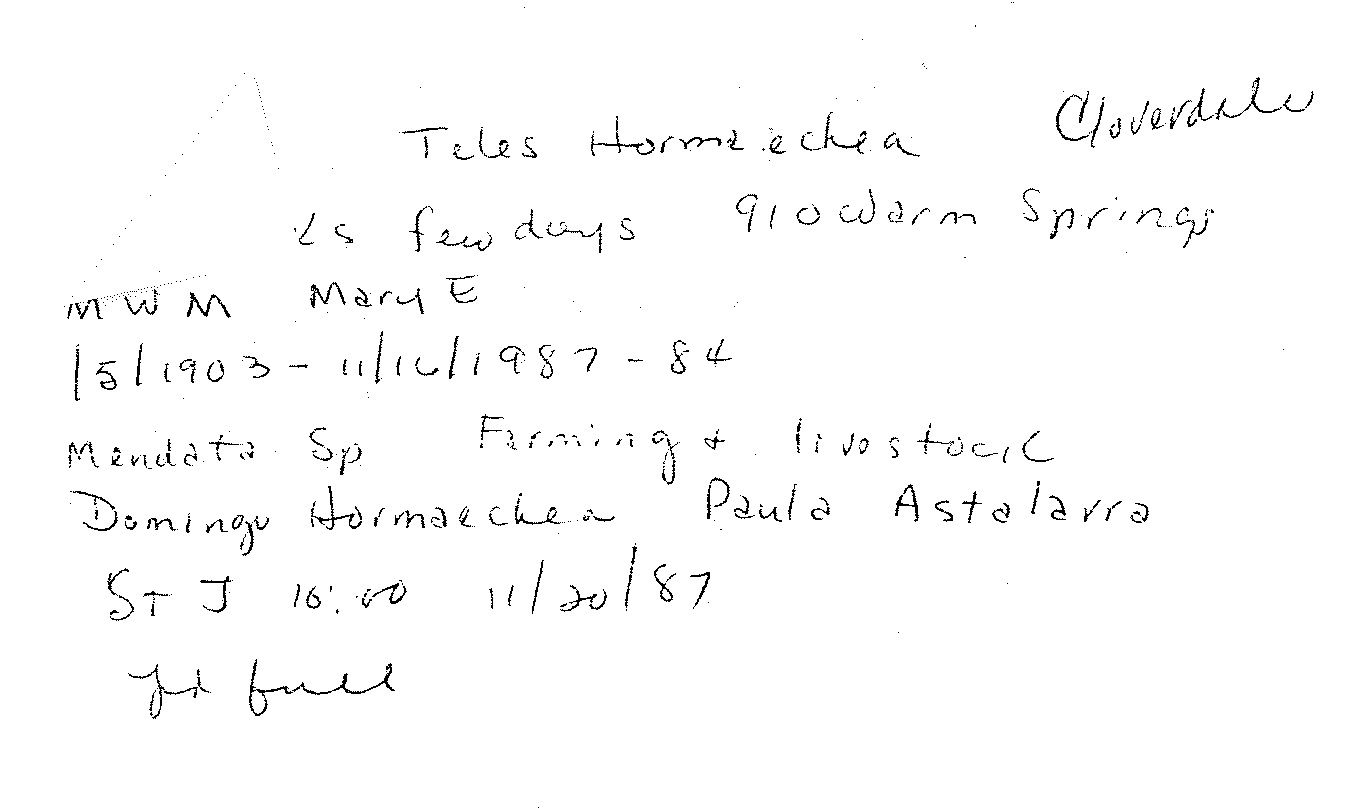 Teles Hormaechea Cloverdale
Ls few days 910 Warm Springs
M W M Mary E
1/5/1903 - 11/16/1987 - 84
Mendata Sp Farming + livestock
Domingo Hormaechea Paula Astalarra
ST J 10:00 11/20/87
pd full